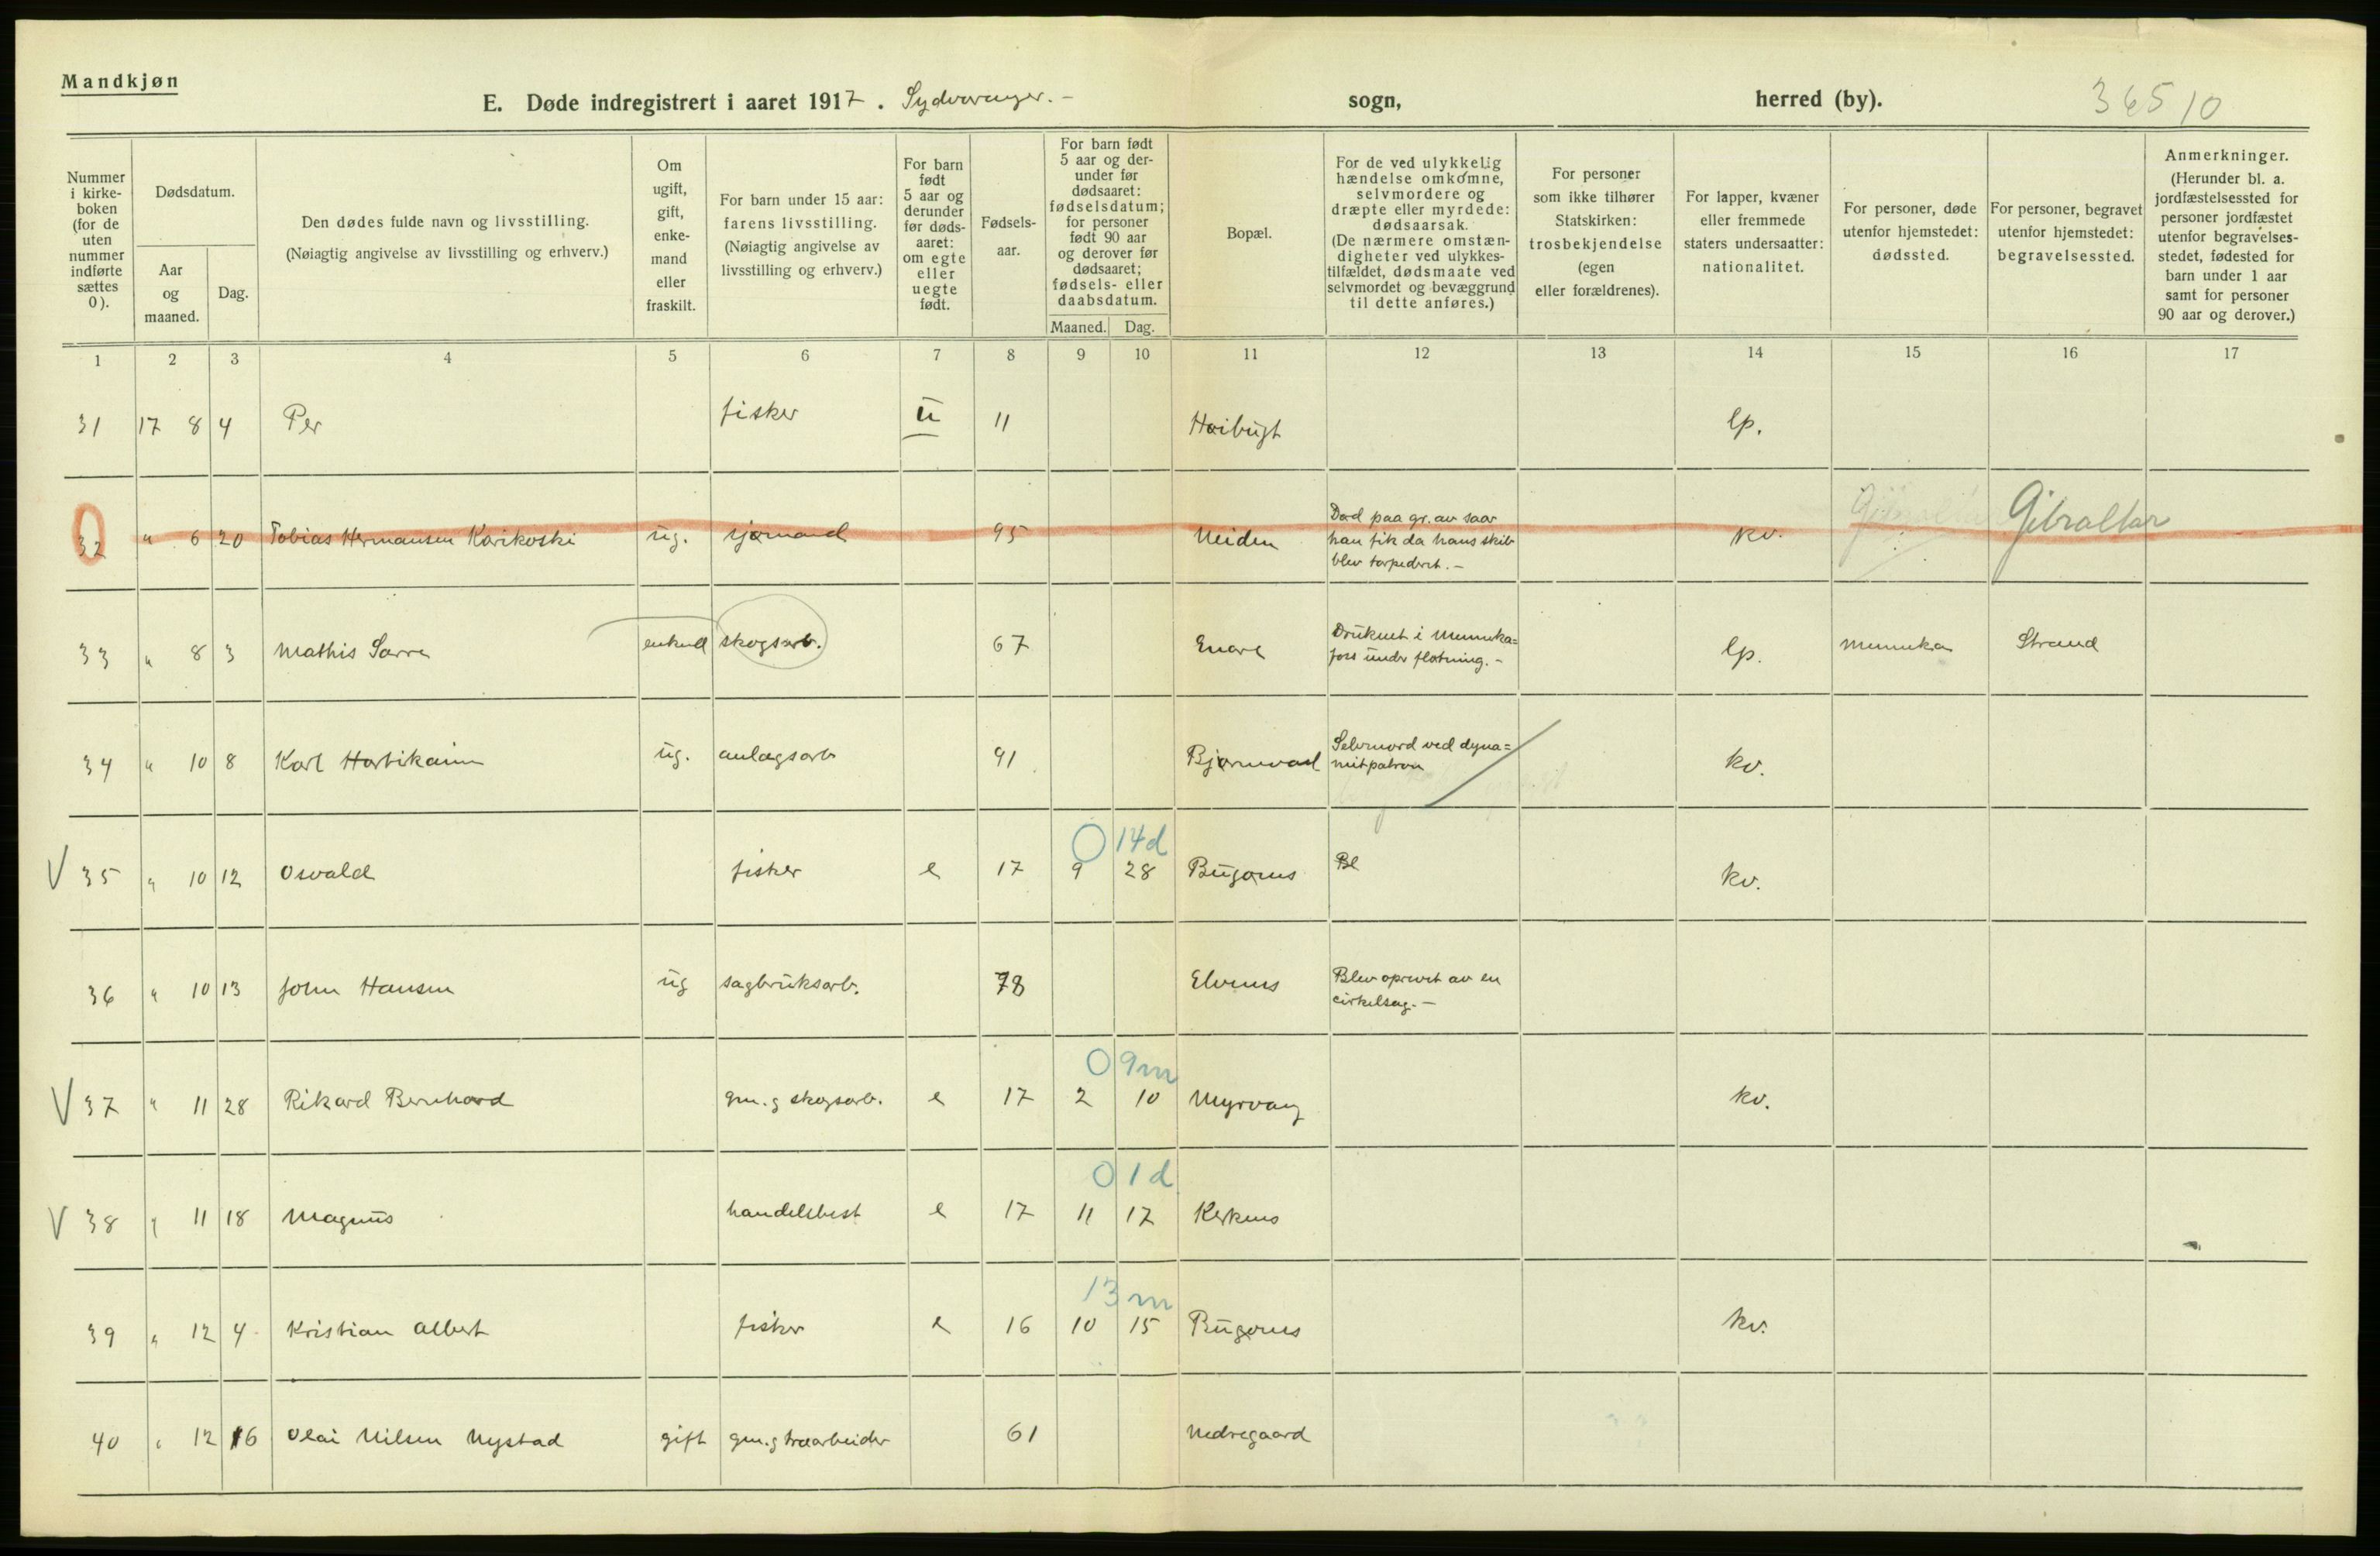 Mandkjøn
E. Døde indregistrert i aaret 1917. Sydvaranger. - sogn, herred (by). 36510
Nummer i kirke- boken (for de uten nummer indførte sættes 0).
Dødsdatum.
Aar og maaned.
Dag.
Den dødes fulde navn og livsstilling.
(Nøiagtig angivelse av livsstilling og erhverv.)
Om ugift, gift, enke- mand eller fraskilt.
For barn under 15 aar: farens livsstilling.
(Nøiagtig angivelse av livsstilling og erhverv.)
For barn født 5 aar og derunder før døds- aaret: om egte eller uegte født.
Fødsels- aar.
For barn født 5 aar og der- under før dødsaaret: fødselsdatum; for personer født 90 aar og derover før dødsaaret; fødsels- eller daabsdatum.
Maaned. Dag.
Bopæl.
For de ved ulykkelig hændelse omkomne, selvmordere og dræpte eller myrdede: dødsaarsak.
(De nærmere omstæn- digheter ved ulykkes- tilfældet, dødsmaate ved selvmordet og bevæggrund til dette anføres.)
For personer som ikke tilhører Statskirken: trosbekjendelse (egen eller forældrenes).
For lapper, kvæner eller fremmede staters undersaatter: nationalitet.
For personer, døde utenfor hjemstedet: dødssted.
For personer, begravet utenfor hjemstedet: begravelsessted.
Anmerkninger.
(Herunder bl. a. jordfæstelsessted for personer jordfæstet utenfor begravelses- stedet, fødested for barn under 1 aar samt for personer 90 aar og derover.)
1 2 3 4 5 6 7 8 9 10 11 12 13 14 15 16 17
31 17 8 4 Per fisker u 11 Høibugt lp.
32 " 6 20 Tobias Hermansen Karikoski ug. sjømand 95 Neiden Død paa gr. av saar
han fik da hans skib
blev torpedert. - kv. Gibraltar Gibraltar
33 " 8 3 Mathis Sarre enkem skogsarb. 67 Enare Druknet i Mennika=
fors under fløtning. - lp. Mennika Strand
34 " 10 8 Karl Hartikain ug. anlægsarb 91 Bjørnevad Selvmord ved dyna=
mitpatron kv.
0 14d
V 35 " 10 12 Osvald fisker e 17 9 28 Bugønes Bl kv.
36 " 10 13 John Hansen ug sagbruksarb. 78 Elvenes Blev oprevet av en
cirkelsag. -
0 9m
V 37 " 11 28 Rikard Bernhard gm. g skogsarb. e 17 2 10 Myrvang kv.
0 1d
V 38 " 11 18 Magnus handelsbest e 17 11 17 Kirkenes
13 m
39 " 12 4 Kristian Albert fisker e 16 10 15 Bugønes kv.
40 " 12 16 Olai Nilsen Nystad gift gm. g træarbeider 61 Nedregaard